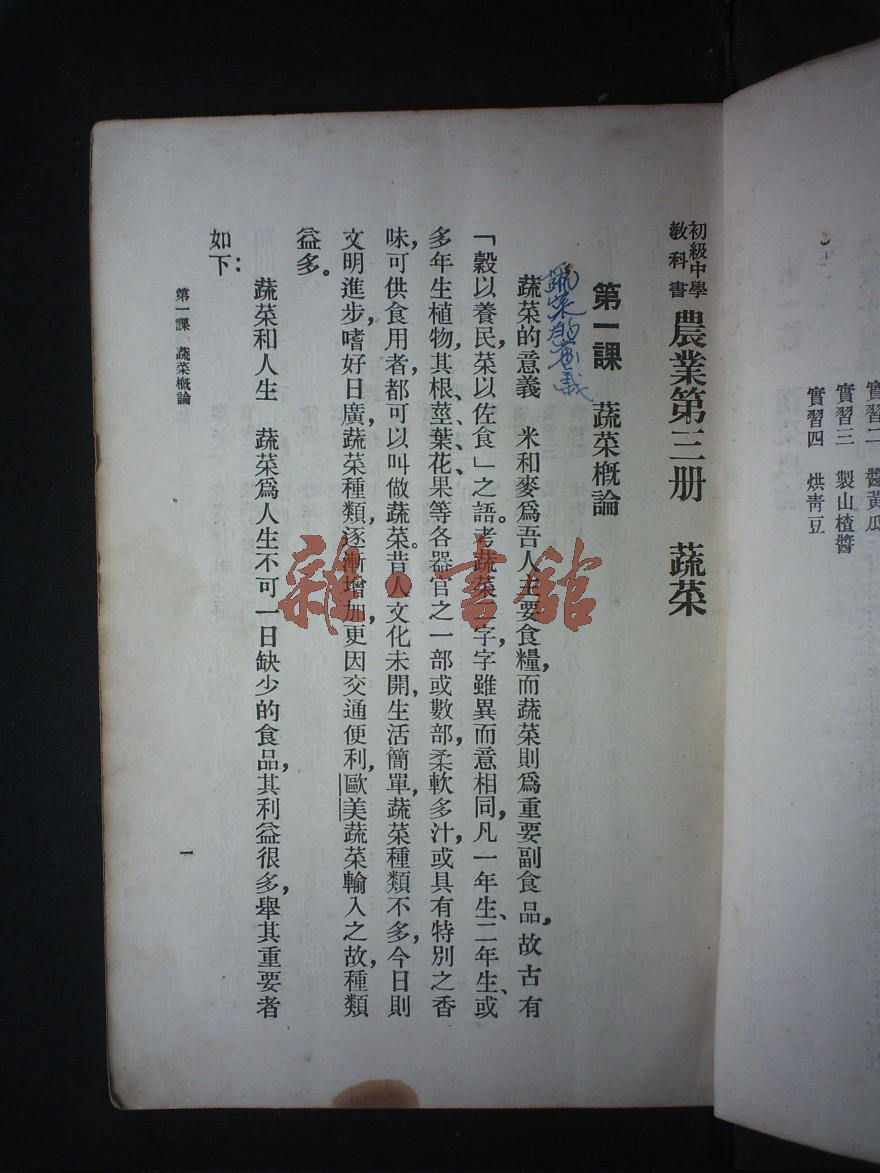 實習二 醬黃瓜
實習三 製山楂醬
實習四 烘靑豆
初級中學
教科書
農業第三册 蔬菜
第一課 蔬菜概論
蔬菜的意義
蔬菜的意義 米和麥爲吾人主要食糧，而蔬菜則爲重要副食品，故古有
「穀以養民，菜以佐食」之語。考蔬菜二字，字雖異而意相同，凡一年生、二年生、或
多年生植物，其根、莖、葉、花果等各器官之一部或數部，柔軟多汁，或具有特別之香
味，可供食用者，都可以叫做蔬菜。昔人文化未開，生活簡單，蔬菜種類不多，今日則
文明進步，嗜好日廣，蔬菜種類，逐漸增加，更因交通便利，歐美蔬菜輸入之故，種類
益多。
蔬菜和人生 蔬菜爲人生不可一日缺少的食品，其利益很多，舉其重要者
如下：
第一課 蔬菜概論
一
雜·書館